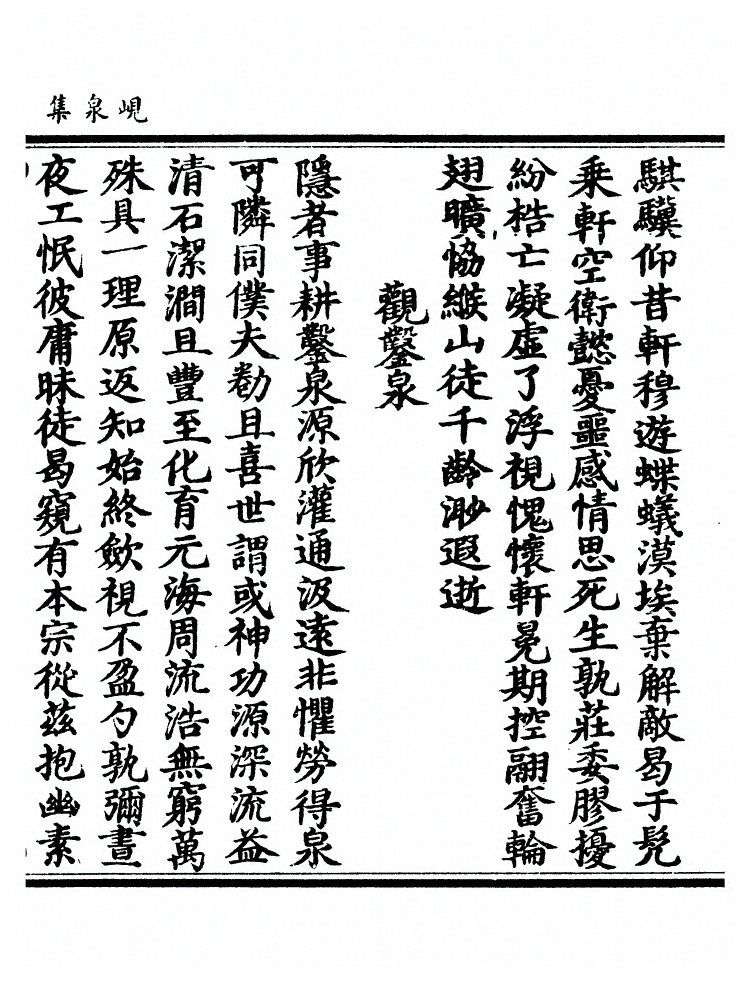 峴泉集
騏驥仰昔軒穆遊蝶蟻漠埃棄解敵曷于髡
乘軒空衛懿憂噩感情思死生孰莊委膠擾
紛梏亡凝虛了浮視愧懷軒冕期控翮奮輪
翅曠恊緱山徒千齡渺遐逝
觀鑿泉
隱者事耕鑿泉源欣灌通汲遠非懼勞得泉
可隣同僕夫勸且喜世謂或神功源深流益
清石潔澗且豐至化育元海周流浩無窮萬
殊具一理原返知始終歛視不盈勺孰彌晝
夜工恨彼庸昧徒曷窺有本宗從茲抱幽素